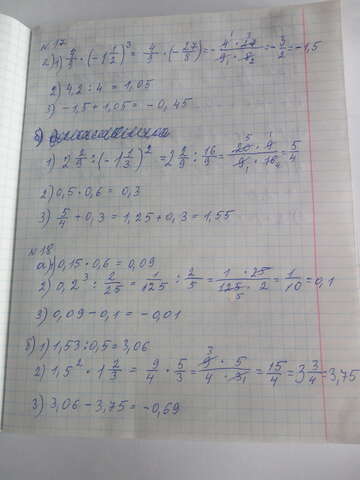 №17
а) 1) 4/9 · (-1 1/2)³ = 4/9 · (-27/8) = - 4 · 27 / 9 · 8 = -3/2 = -1,5
2) 4,2 : 4 = 1,05
3) -1,5 + 1,05 = -0,45
б)
1) 2 2/9 : (-1 1/3)² = 2 2/9 : 16/9 = 20 · 9 / 9 · 16 = 5/4
2) 0,5 · 0,6 = 0,3
3) 5/4 + 0,3 = 1,25 + 0,3 = 1,55
№18
а) 1) 0,15 · 0,6 = 0,09
2) 0,2³ : 2/25 = 1/125 : 2/5 = 1 · 25 / 125 · 2 = 1/10 = 0,1
3) 0,09 - 0,1 = -0,01
б) 1) 1,53 : 0,5 = 3,06
2) 1,5² · 1 2/3 = 9/4 · 5/3 = 9 · 5 / 4 · 3 = 15/4 = 3 3/4 = 3,75
3) 3,06 - 3,75 = -0,69